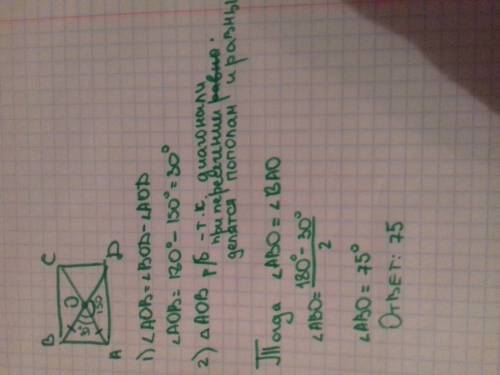 B C
O
30° 150
A D
1) ∠AOB = ∠BOD - ∠AOD
∠AOB = 180° - 150° = 30°
2) △AOB р/б - т.к. диагонали
при пересечении равно.
делятся пополам и равны
Тогда ∠ABO = ∠BAO
∠ABO = 180° - 30° / 2
∠ABO = 75°
Ответ: 75